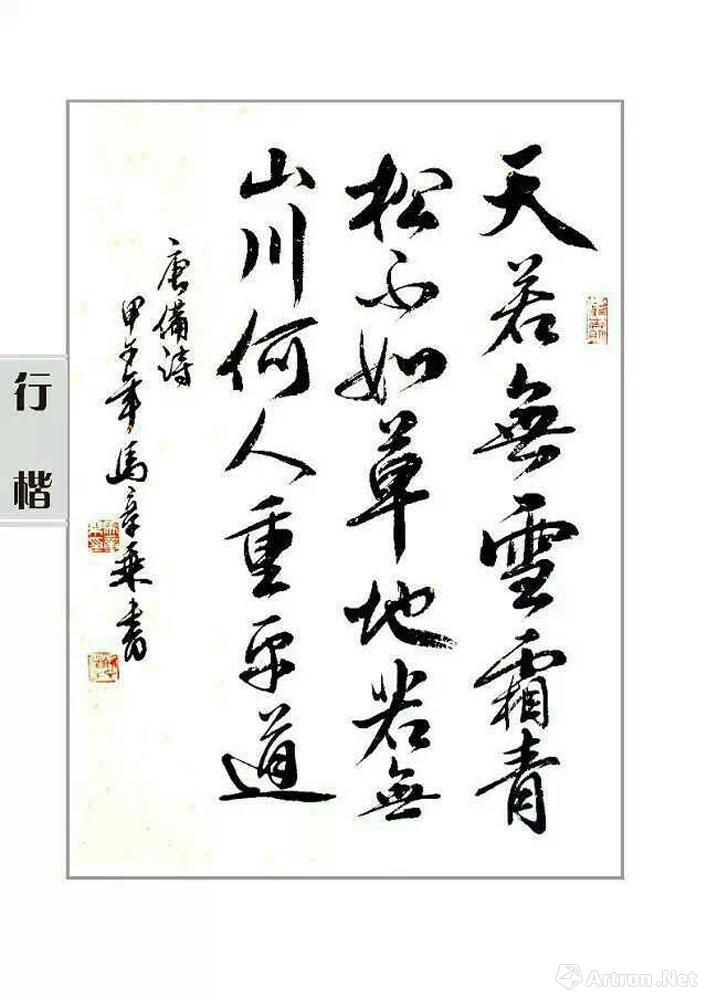 天若無雪霜青
松不如草地若無
山川何人重平道
唐備詩
甲午年馬章乘書
行楷
Artron.Net